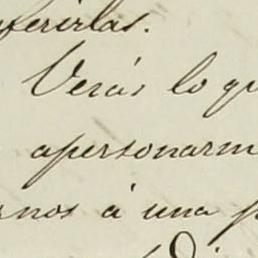 ferirlas.
Verás lo qu
apersonarm
rnos á una p